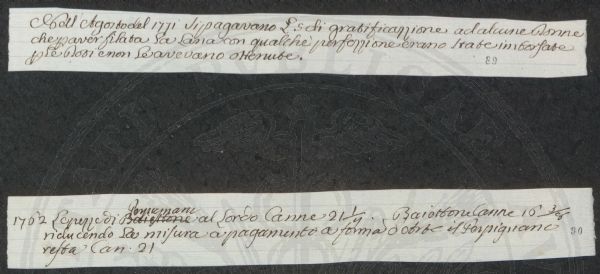 Nell Agosto del 1771 si pagavano L 5 di gratificazzione ad alcune Donne
che p aver filata la Lana con qualche perfezzione erano state imborsate
p le Doti e non le avevano ottenute.
89
Perpignani
1762 Le pezze di Baiettone al lordo Canne 21 1/4. Baiettone Canne 16
riducendo la misura a pagamento a forma d
resta Can. 21
90